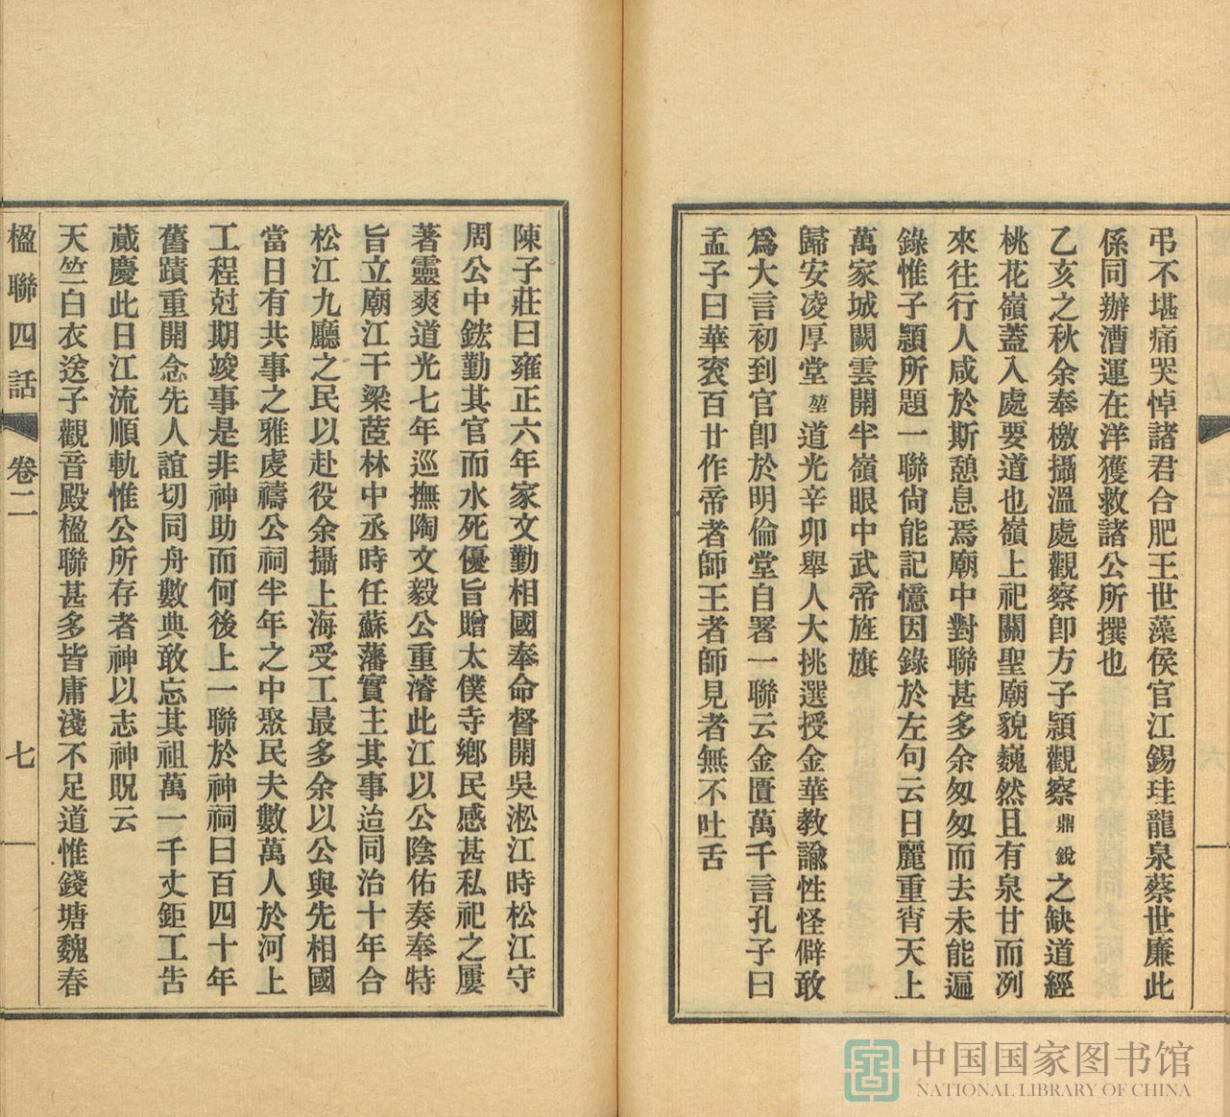 弔不堪痛哭悼諸君合肥王世藻侯官江錫珪龍泉蔡世廉此
係同辦漕運在洋獲救諸公所撰也
乙亥之秋余奉檄攝溫處觀察卽方子頴觀察鼎銳之缺道經
桃花嶺蓋入處要道也嶺上祀關聖廟貌巍然且有泉甘而洌
來往行人咸於斯憩息焉廟中對聯甚多余匆匆而去未能遍
錄惟子頴所題一聯尙能記憶因錄於左句云日麗重宵天上
萬家城闕雲開半嶺眼中武帝旌旗
歸安凌厚堂堃道光辛卯舉人大挑選授金華教諭性怪僻敢
爲大言初到官卽於明倫堂自署一聯云金匱萬千言孔子曰
孟子曰華袞百廿作帝者師王者師見者無不吐舌
陳子莊曰雍正六年家文勤相國奉命督開吳淞江時松江守
周公中鋐勤其官而水死優旨贈太僕寺鄕民感甚私祀之屢
著靈爽道光七年巡撫陶文毅公重濬此江以公陰佑奏奉特
旨立廟江干梁茝林中丞時任蘇藩實主其事迨同治十年合
松江九廳之民以赴役余攝上海受工最多余以公與先相國
當日有共事之雅虔禱公祠半年之中聚民夫數萬人於河上
工程尅期竣事是非神助而何後上一聯於神祠曰百四十年
舊蹟重開念先人誼切同舟數典敢忘其祖萬一千丈鉅工告
蕆慶此日江流順軌惟公所存者神以志神貺云
天竺白衣送子觀音殿楹聯甚多皆庸淺不足道惟錢塘魏春
楹聯四話 卷二 七
中国国家图书馆
NATIONAL LIBRARY OF CHINA